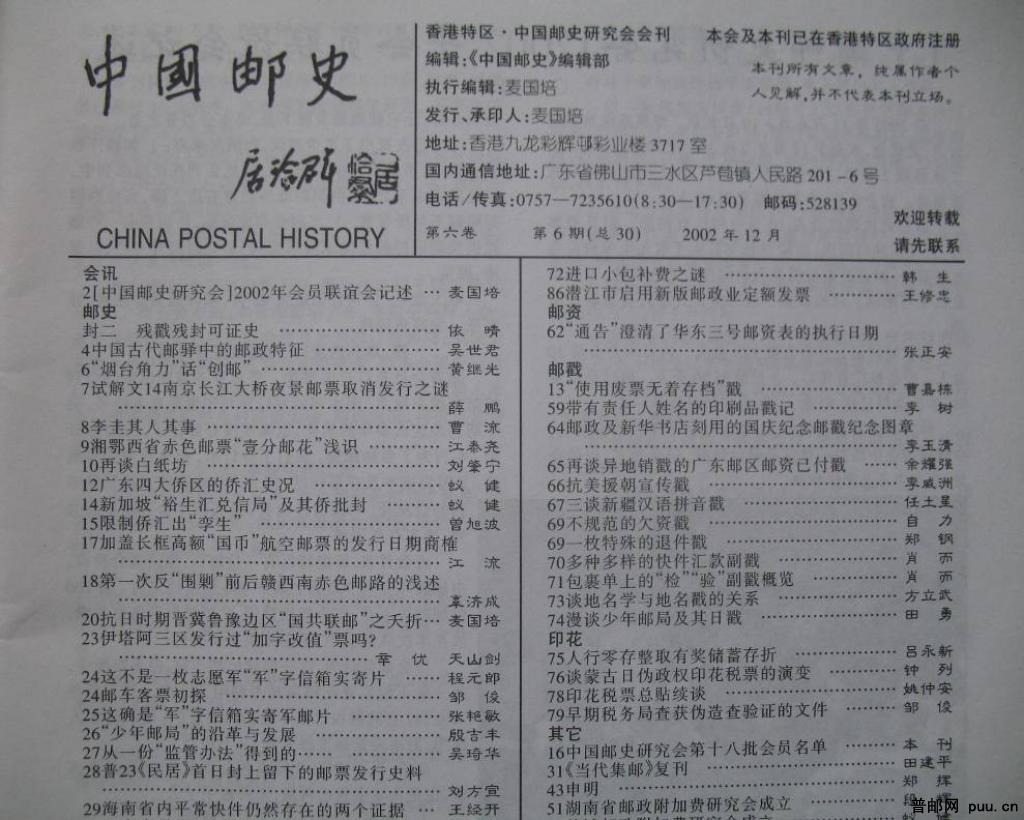 中國邮史
CHINA POSTAL HISTORY
香港特区·中国邮史研究会会刊
本会及本刊已在香港特区政府注册
编辑:《中国邮史》编辑部
本刊所有文章，纯属作者个
人见解,并不代表本刊立场。
执行编辑:麦国培
发行、承印人:麦国培
地址:香港九龙彩辉邨彩业楼 3717 室
国内通信地址:广东省佛山市三水区芦苞镇人民路 201－6 号
电话/传真:0757—7235610(8:30—17:30) 邮码:528139
欢迎转载
请先联系
第六卷 第 6 期(总 30) 2002 年 12 月
会讯
2[中国邮史研究会]2002年会员联谊会记述 … 麦国培
邮史
封二 残戳残封可证史 ……………… 依 晴
4中国古代邮驿中的邮政特征 ……………… 吴世君
6“烟台角力”话“创邮” ……………… 黄继光
7试解文14南京长江大桥夜景邮票取消发行之谜
……………… 薛 鹏
8李圭其人其事 ……………… 曹 流
9湘鄂西省赤色邮票“壹分邮花”浅识 ……… 江泰尧
10再谈白纸坊 ……………… 刘肇宁
12广东四大侨区的侨汇史况 ……………… 蚁 健
14新加坡“裕生汇兑信局”及其侨批封 ……… 蚁 健
15限制侨汇出“孪生” ……………… 曾旭波
17加盖长框高额“国币”航空邮票的发行日期商榷
……………… 江 流
18第一次反“围剿”前后赣西南赤色邮路的浅述
……………… 辜济成
20抗日时期晋冀鲁豫边区“国共联邮”之夭折… 麦国培
23伊塔阿三区发行过“加字改值”票吗?
……………… 优 天山剑
24这不是一枚志愿军“军”字信箱实寄片 …… 程元郎
24邮车客票初探 ……………… 邹 俊
25这确是“军”字信箱实寄军邮片 ……… 张艳敏
26“少年邮局”的沿革与发展 ……………… 殷古丰
27从一份“监管办法”得到的…… ……… 吴琦华
28普23《民居》首日封上留下的邮票发行史料
……………… 刘方宣
29海南省内平常快件仍然存在的两个证据 … 王经开
72进口小包补费之谜 ……………… 韩 生
86潜江市启用新版邮政业定额发票 ……… 王修忠
邮资
62“通告”澄清了华东三号邮资表的执行日期
……………… 张正安
邮戳
13“使用废票无着存档”戳 ……………… 曹嘉栋
59带有责任人姓名的印刷品戳记 ……… 李 树
64邮政及新华书店刻用的国庆纪念邮戳纪念图章
……………… 李玉清
65再谈异地销戳的广东邮区邮资已付戳 …… 余耀强
66抗美援朝宣传戳 ……………… 李威洲
67三谈新疆汉语拼音戳 ……………… 任土星
69不规范的欠资戳 ……………… 自 力
69一枚特殊的退件戳 ……………… 郑 钢
70多种多样的快件汇款副戳 ……………… 肖 而
71包裹单上的“检”“验”副戳概览 ……… 肖 而
73谈地名学与地名戳的关系 ……………… 方立武
74漫谈少年邮局及其日戳 ……………… 田 勇
印花
75人行零存整取有奖储蓄存折 ……… 吕永新
76谈蒙古日伪政权印花税票的演变 ……… 钟 列
78印花税票总贴续谈 ……………… 姚仲安
79早期税务局查获伪造查验证的文件 ……… 邹 俊
其它
16中国邮史研究会第十八批会员名单 ……… 本 刊
31《当代集邮》复刊 ……………… 田建平
43申明 ……………… 郑 辉
51湖南省邮政附加费研究会成立 ………
普邮网 puu.cn